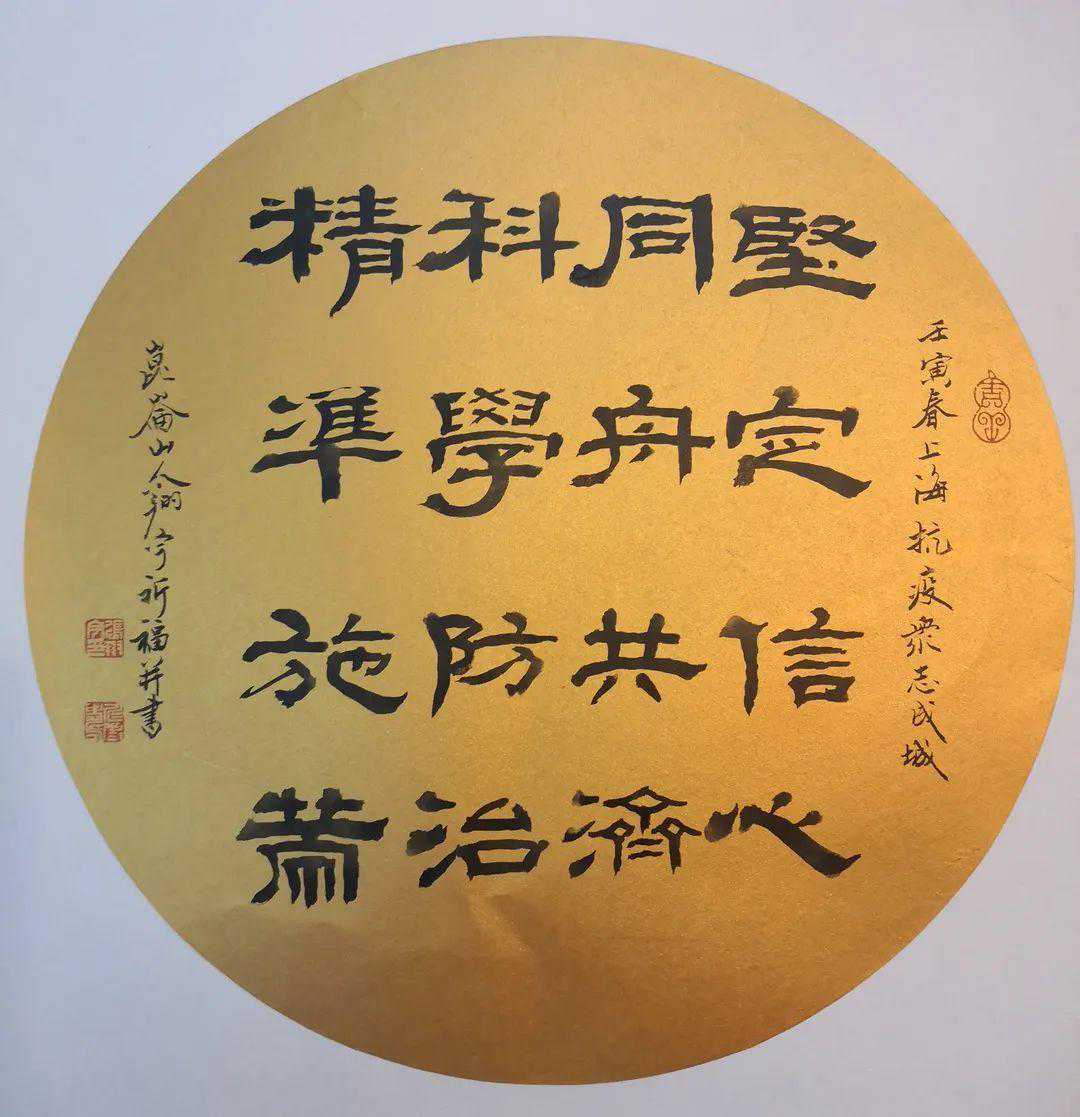 壬寅春上海抗疫衆志成城
堅定信心
同舟共濟
科學防治
精準施策
崑崙山人翔宇祈福并書